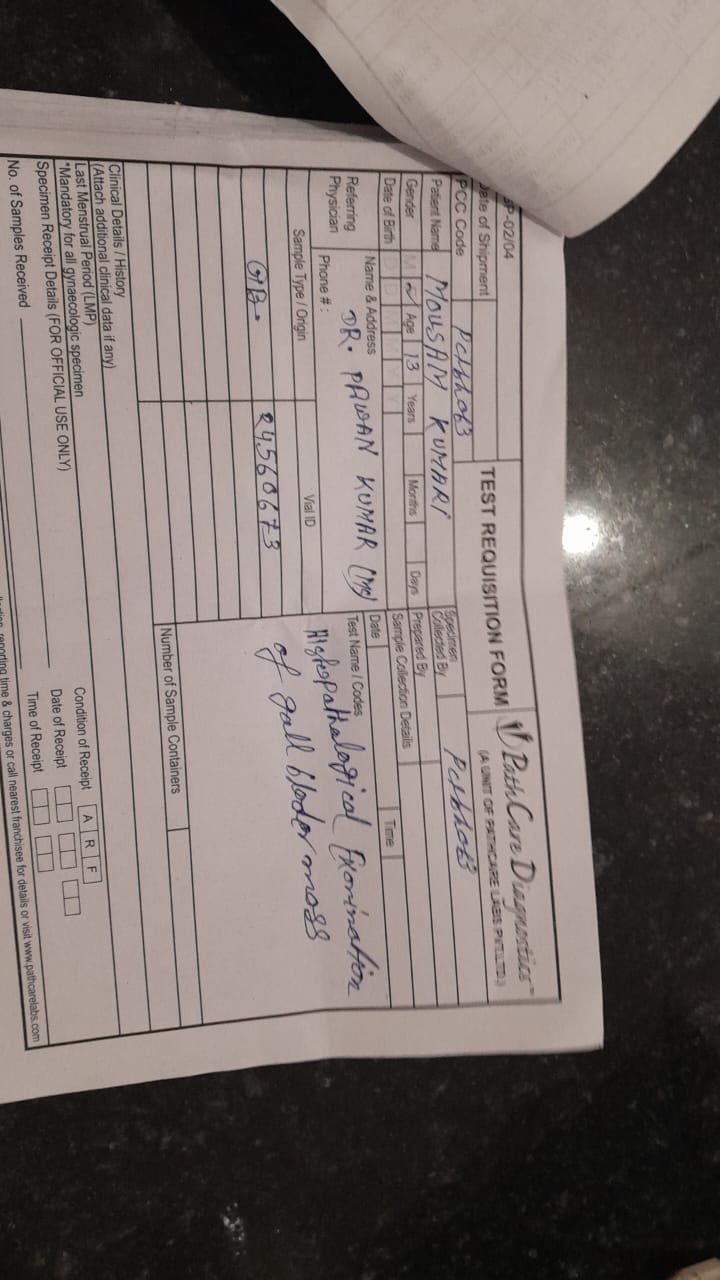 SP-02/04
TEST REQUISITION FORM
PathCare Diagnostics™
(A UNIT OF PATHCARE LABS PVT.LTD.)
Date of Shipment
PCC Code
Specimen Collected By
Patient Name MOUSAM KUMARI
Prepared By
Gender M Age 13 Years Months Days
Sample Collection Details
Date of Birth D D M M Y Y
Date Time
Referring Physician
Name & Address DR. PAWAN KUMAR (MS)
Phone # :
Test Name / Codes
Histopathological Examination
of gall blader mass
Sample Type / Origin Vial ID
GB. 24560673
Number of Sample Containers
Clinical Details / History
(Attach additional clinical data if any)
Last Menstrual Period (LMP)
*Mandatory for all gynaecologic specimen
Specimen Receipt Details (FOR OFFICIAL USE ONLY)
No. of Samples Received
Condition of Receipt A R F
Date of Receipt
Time of Receipt
reporting time & charges or call nearest franchisee for details or visit www.pathcarelabs.com